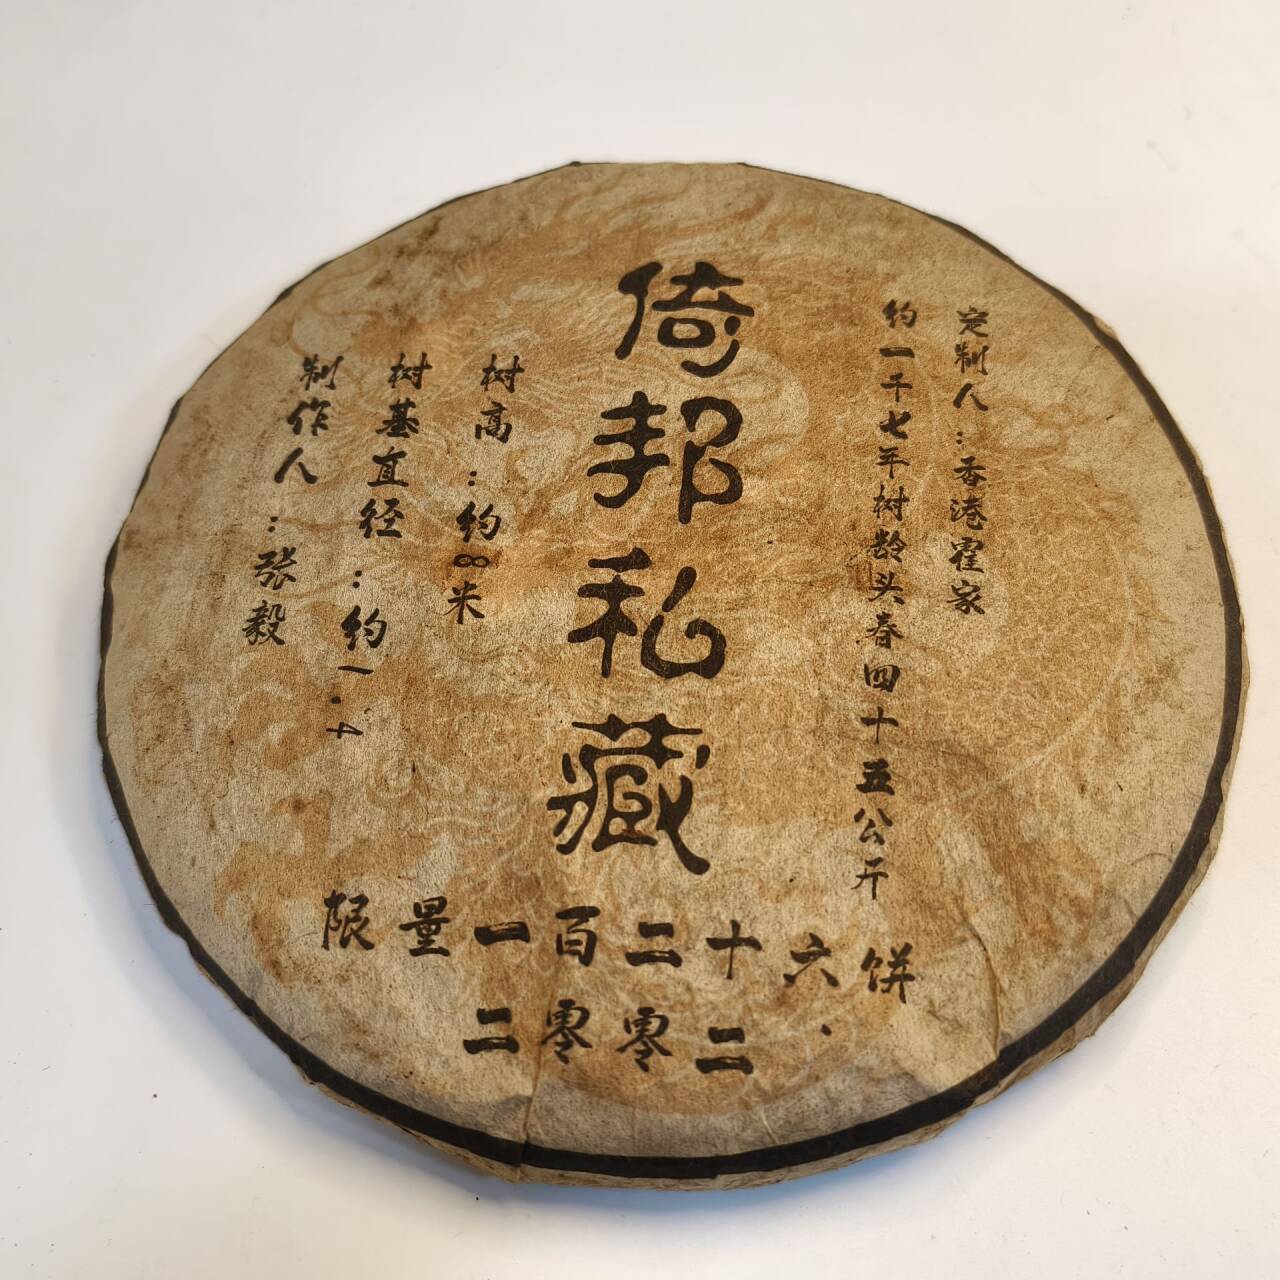 定制人：香港霍家
约一千七年树龄头春四十五公斤
倚邦私藏
树高：约8米
树基直径：约1.4
制作人：张毅
限量一百二十六饼
二零零二